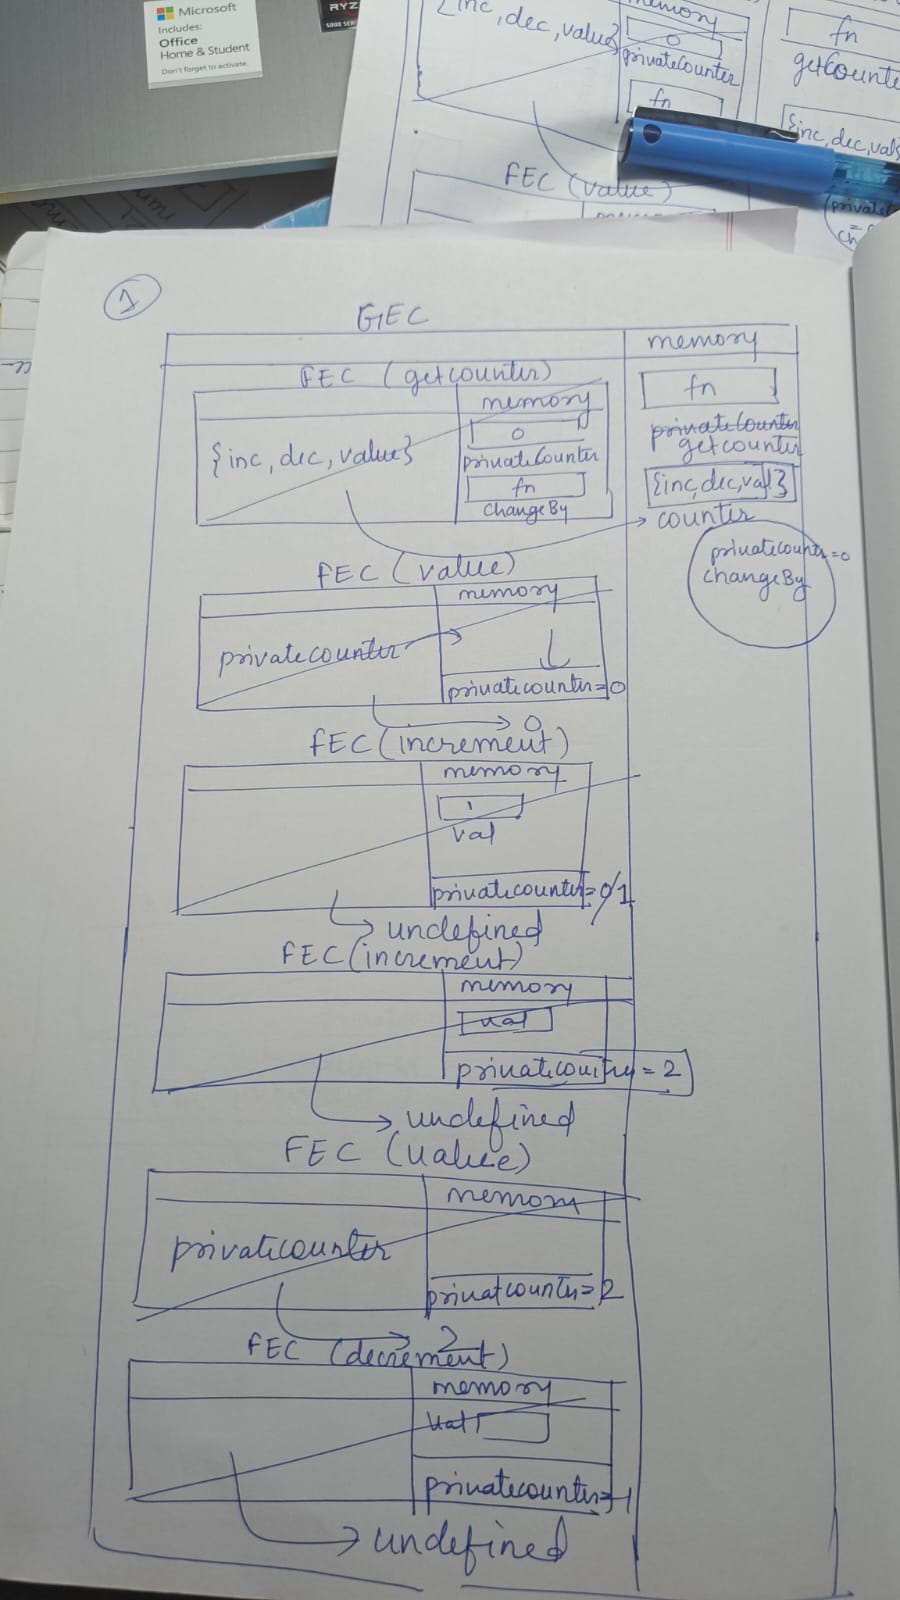 Microsoft
Includes:
Office
Home & Student
Don't forget to activate.
RYZ
5000 SER
{inc, dec, value}
memory
0
privateCounter
fn
fn
getCounte
{inc, dec, val
FEC (value)
(private
1
GEC
memory
FEC (getcounter)
memory
fn
privateCounter
getcounter
0
{inc, dec, value}
privateCounter
fn
changeBy
{inc, dec, val}
counter
privatecounter=0
changeBy
FEC (value)
memory
privatecounter
privatecounter=0
0
FEC (increment)
memory
1
val
privatecounter=0/1
undefined
FEC (increment)
memory
val
privatecounter=2
undefined
FEC (value)
memory
privatecounter
privatcounter=2
2
FEC (decrement)
memory
val
privatecounter=1
undefined